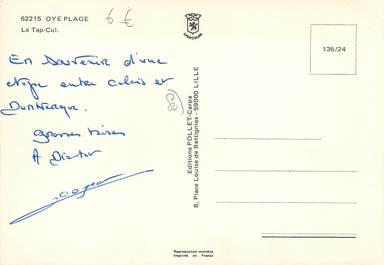 62215 OYE PLAGE
Le Tap-Cul.
6 €
En Souvenir d'une
etape entre Calais et
Dunkerque.
grosses bises
A Bientot
136/24
Editions POLLET-Carpa
8, Place Louise de Bettignies - 59000 LILLE
Reproduction interdite
Imprimé en France